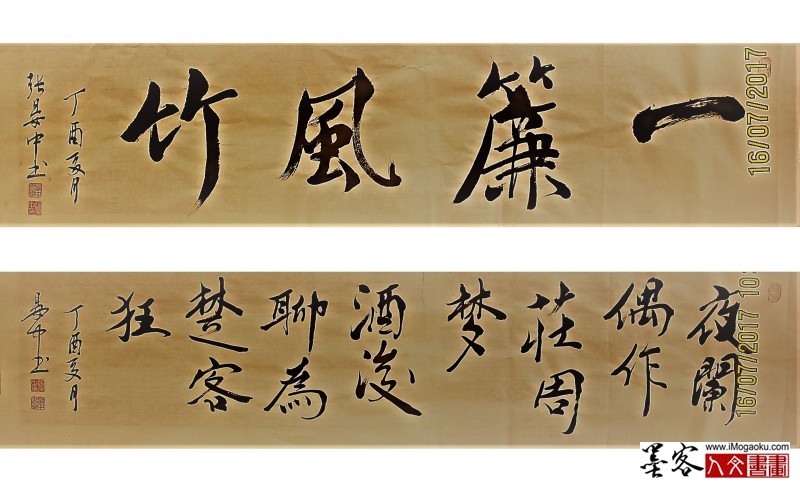 一簾風竹
丁酉夏月
张晏中书
16/07/2017
夜闌
偶作
莊周
梦
酒後
聊為
楚客
狂
丁酉夏月
晏中书
16/07/2017 10:
www.iMogaoku.com
墨客人文書畫